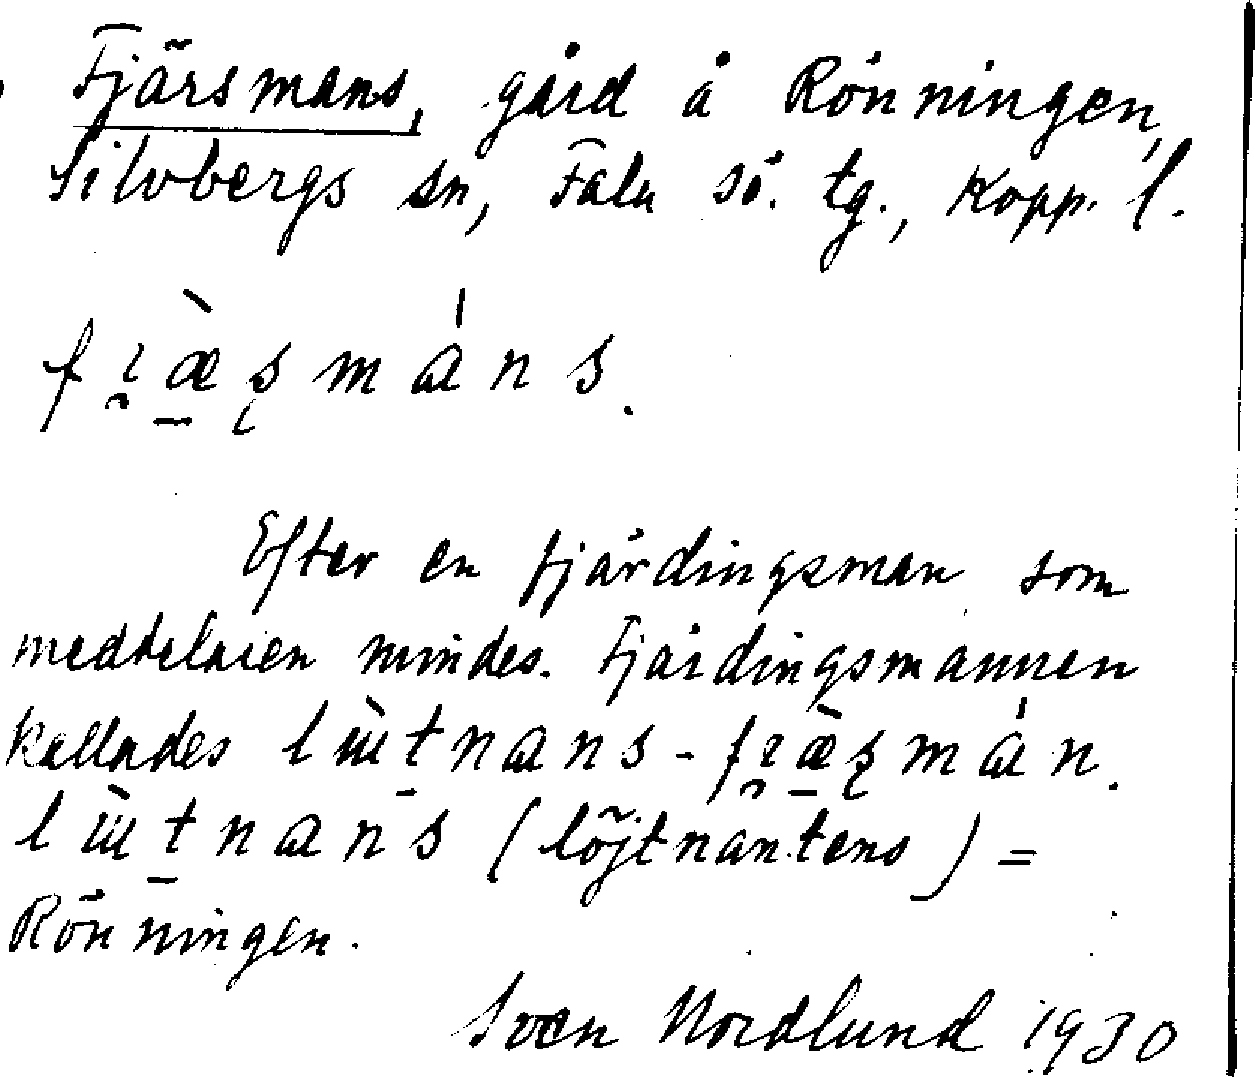 Fjärsmans, gård å Rönningen,
Silvbergs sn, Falu sö. tg., Kopp. l.
fı̯æ̀ʂmáns.
Efter en fjärdingsman som
meddelaren mindes. Fjärdingsmannen
kallades lɯ̀tnans-fı̯æ̀ʂmán.
lɯ̀tnans (löjtnantens) =
Rönningen.
Sven Nordlund 1930